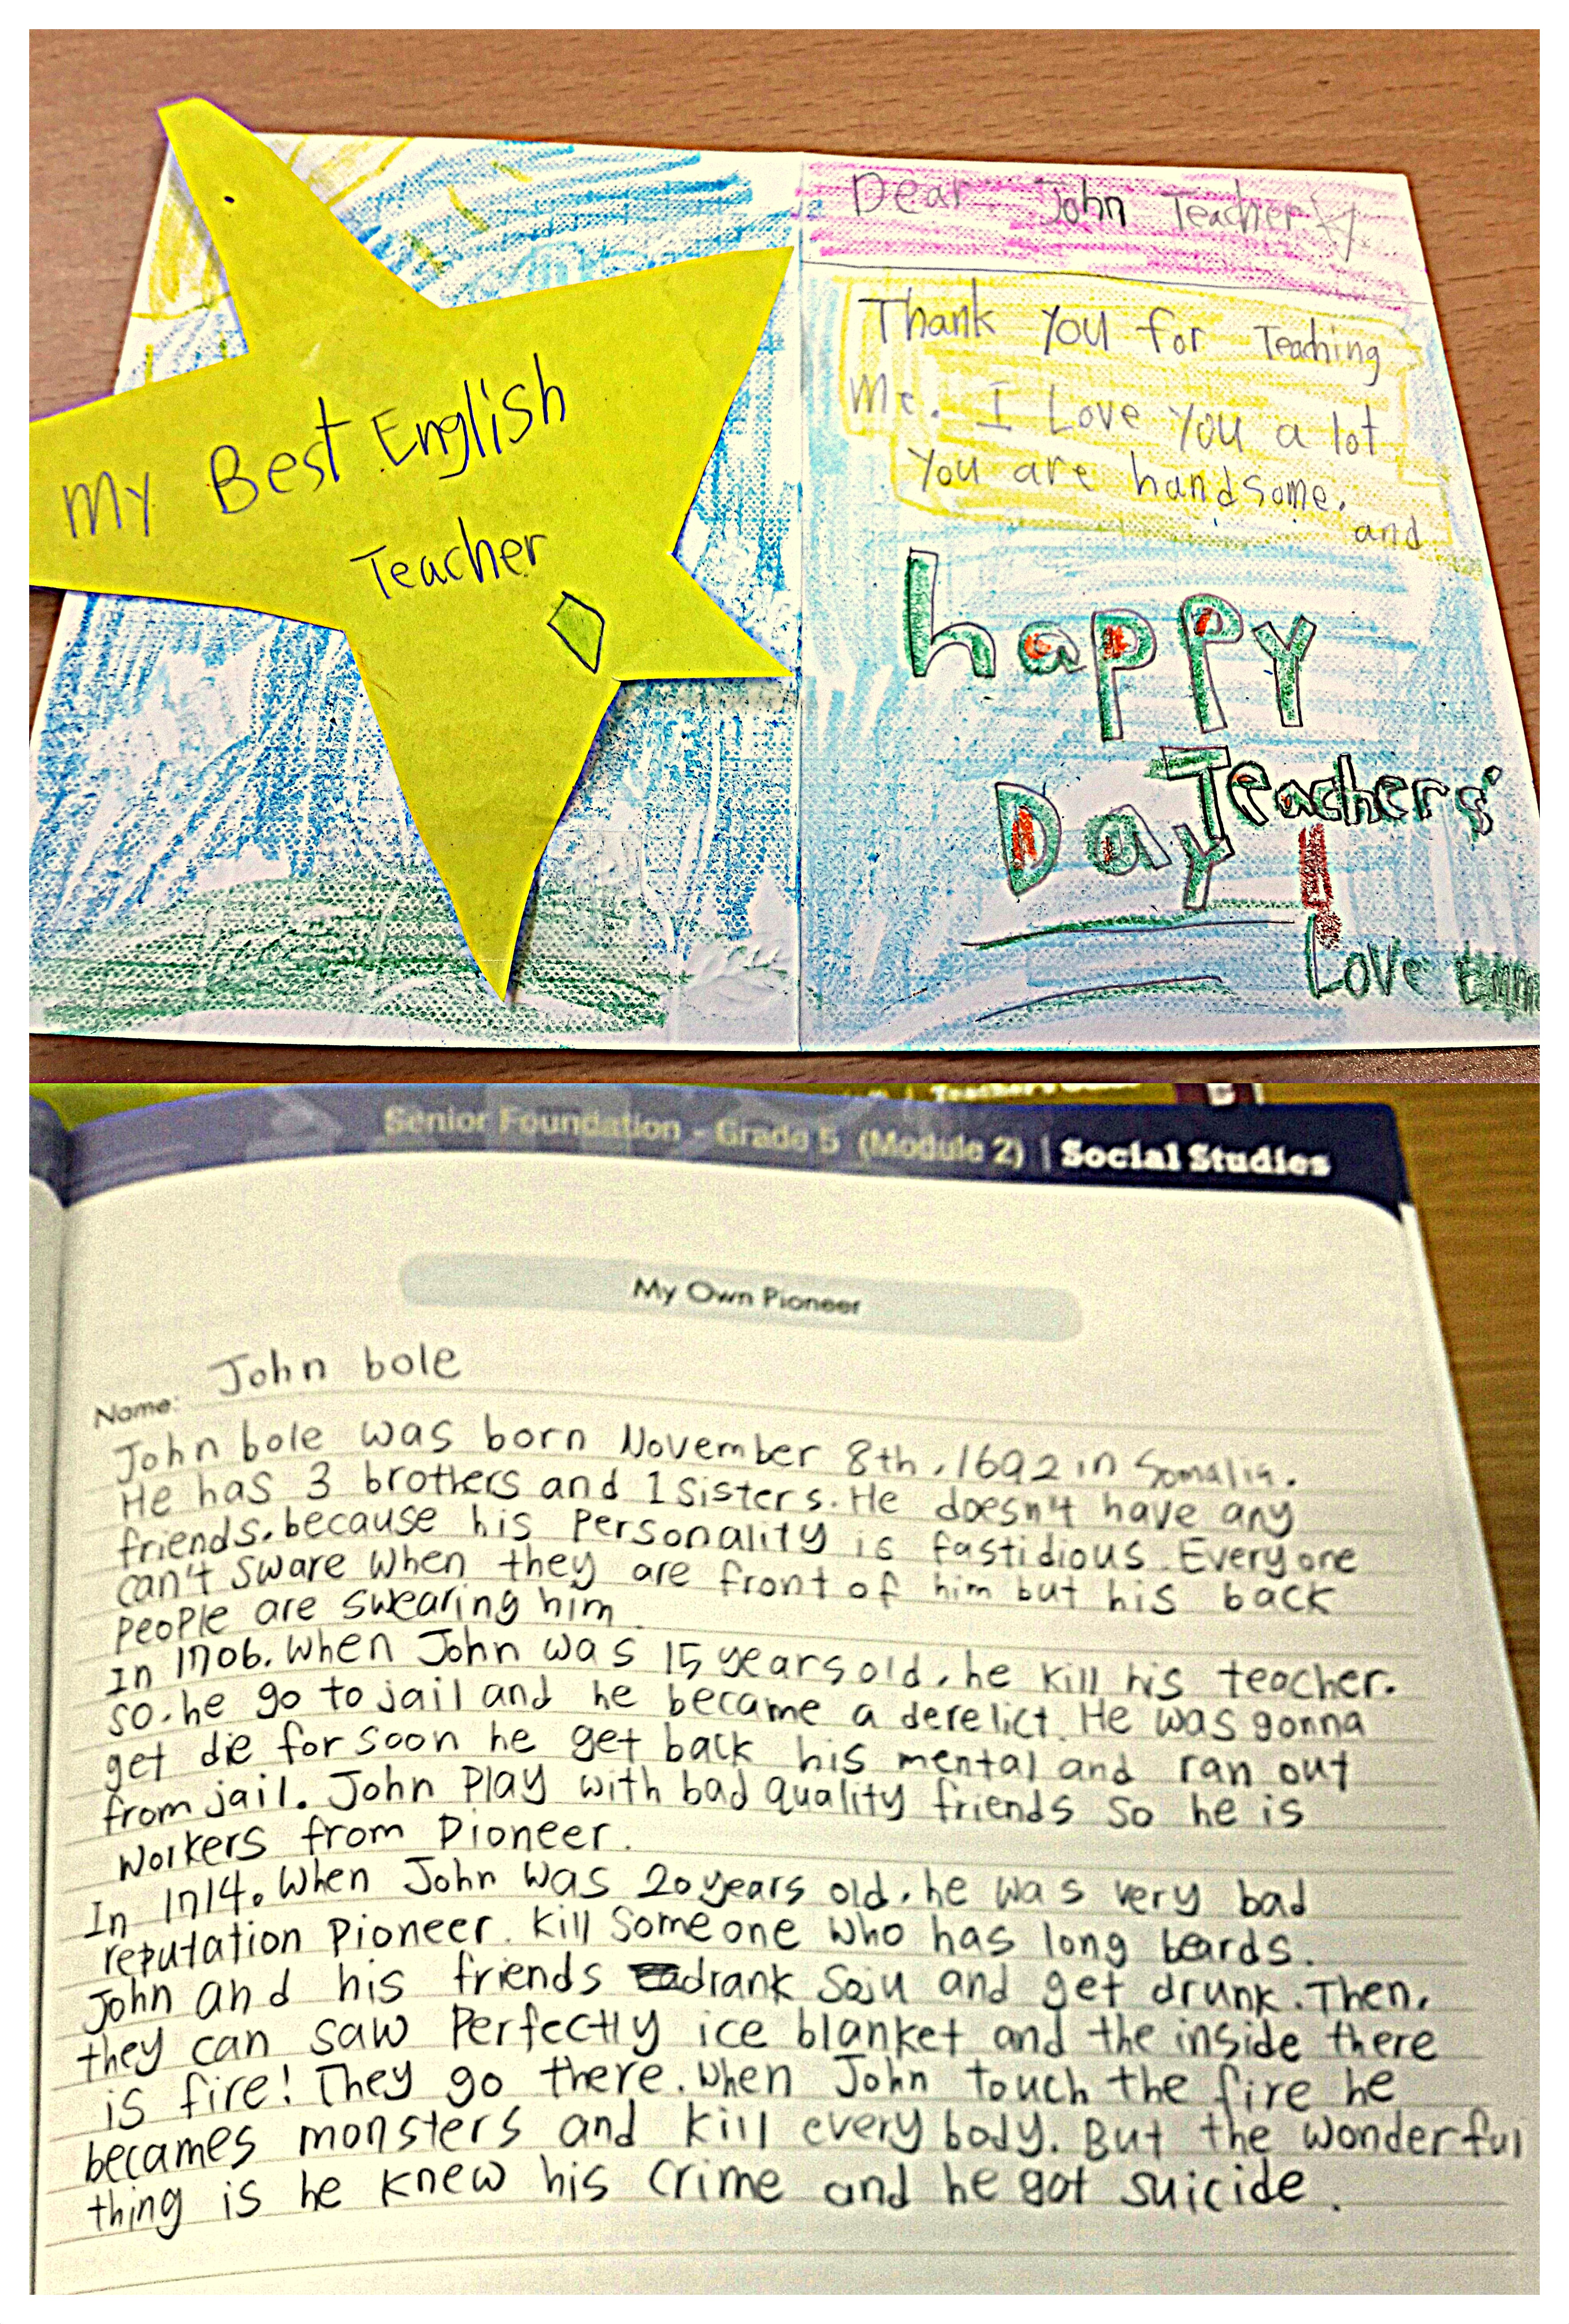 My Best English
Teacher
Dear John Teacher
Thank you for Teaching
Me. I Love you a lot
you are handsome.
and
happy
Teachers'
Day
Love Emma
Senior Foundation - Grade 5 (Module 2) | Social Studies
My Own Pioneer
Name: John bole
John bole was born November 8th, 1692 in Somalia.
He has 3 brothers and 1 sisters. He doesn't have any
friends. because his personality is fastidious. Everyone
can't sware when they are front of him but his back
people are swearing him.
In 1706. When John was 15 years old, he kill his teacher.
so. he go to jail and he became a derelict. He was gonna
get die for soon he get back his mental and ran out
from jail. John Play with bad quality friends so he is
workers from Pioneer.
In 1714. When John was 20 years old, he was very bad
reputation Pioneer. Kill someone who has long beards.
John and his friends drank Soju and get drunk. Then,
they can saw Perfectly ice blanket and the inside there
is fire! They go there. When John touch the fire he
becames monsters and kill every body. But the wonderful
thing is he knew his crime and he got suicide.